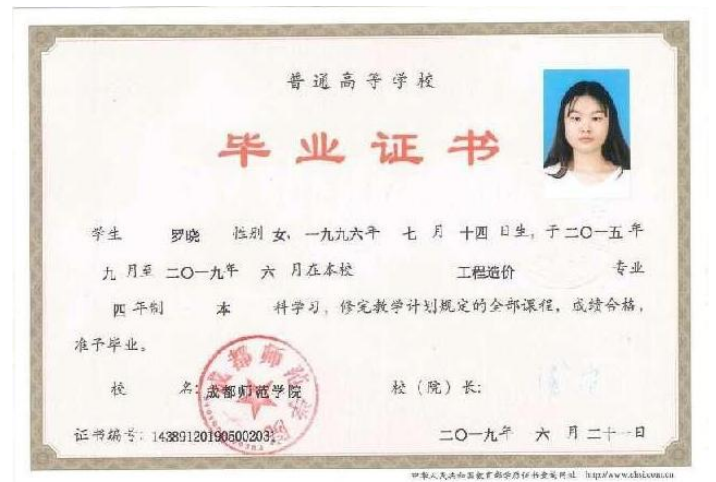 普通高等学校
毕业证书
学生 罗晓 性别 女、一九九六年 七 月 十四 日生，于二〇一五年
九 月至 二〇一九年 六 月在本校 工程造价 专业
四 年制 本 科学习，修完教学计划规定的全部课程，成绩合格，
准予毕业。
校 名: 成都师范学院 校（院）长:
成都师范学院
证书编号: 143891201905002031 二〇一九年 六 月 二十一日
中华人民共和国教育部学历证书查询网址 http://www.chsi.com.cn